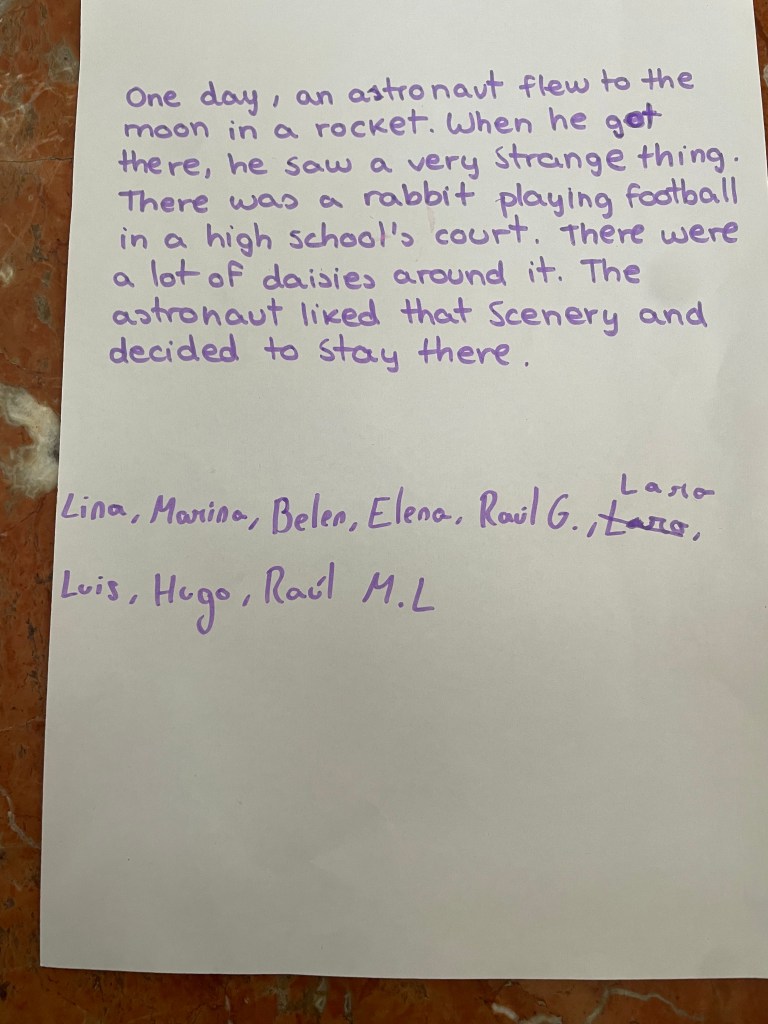 One day, an astronaut flew to the
moon in a rocket. When he got
there, he saw a very strange thing.
There was a rabbit playing football
in a high school's court. There were
a lot of daisies around it. The
astronaut liked that scenery and
decided to stay there.
Lina, Marina, Belen, Elena, Raúl G.,
Luis, Hugo, Raúl M.L